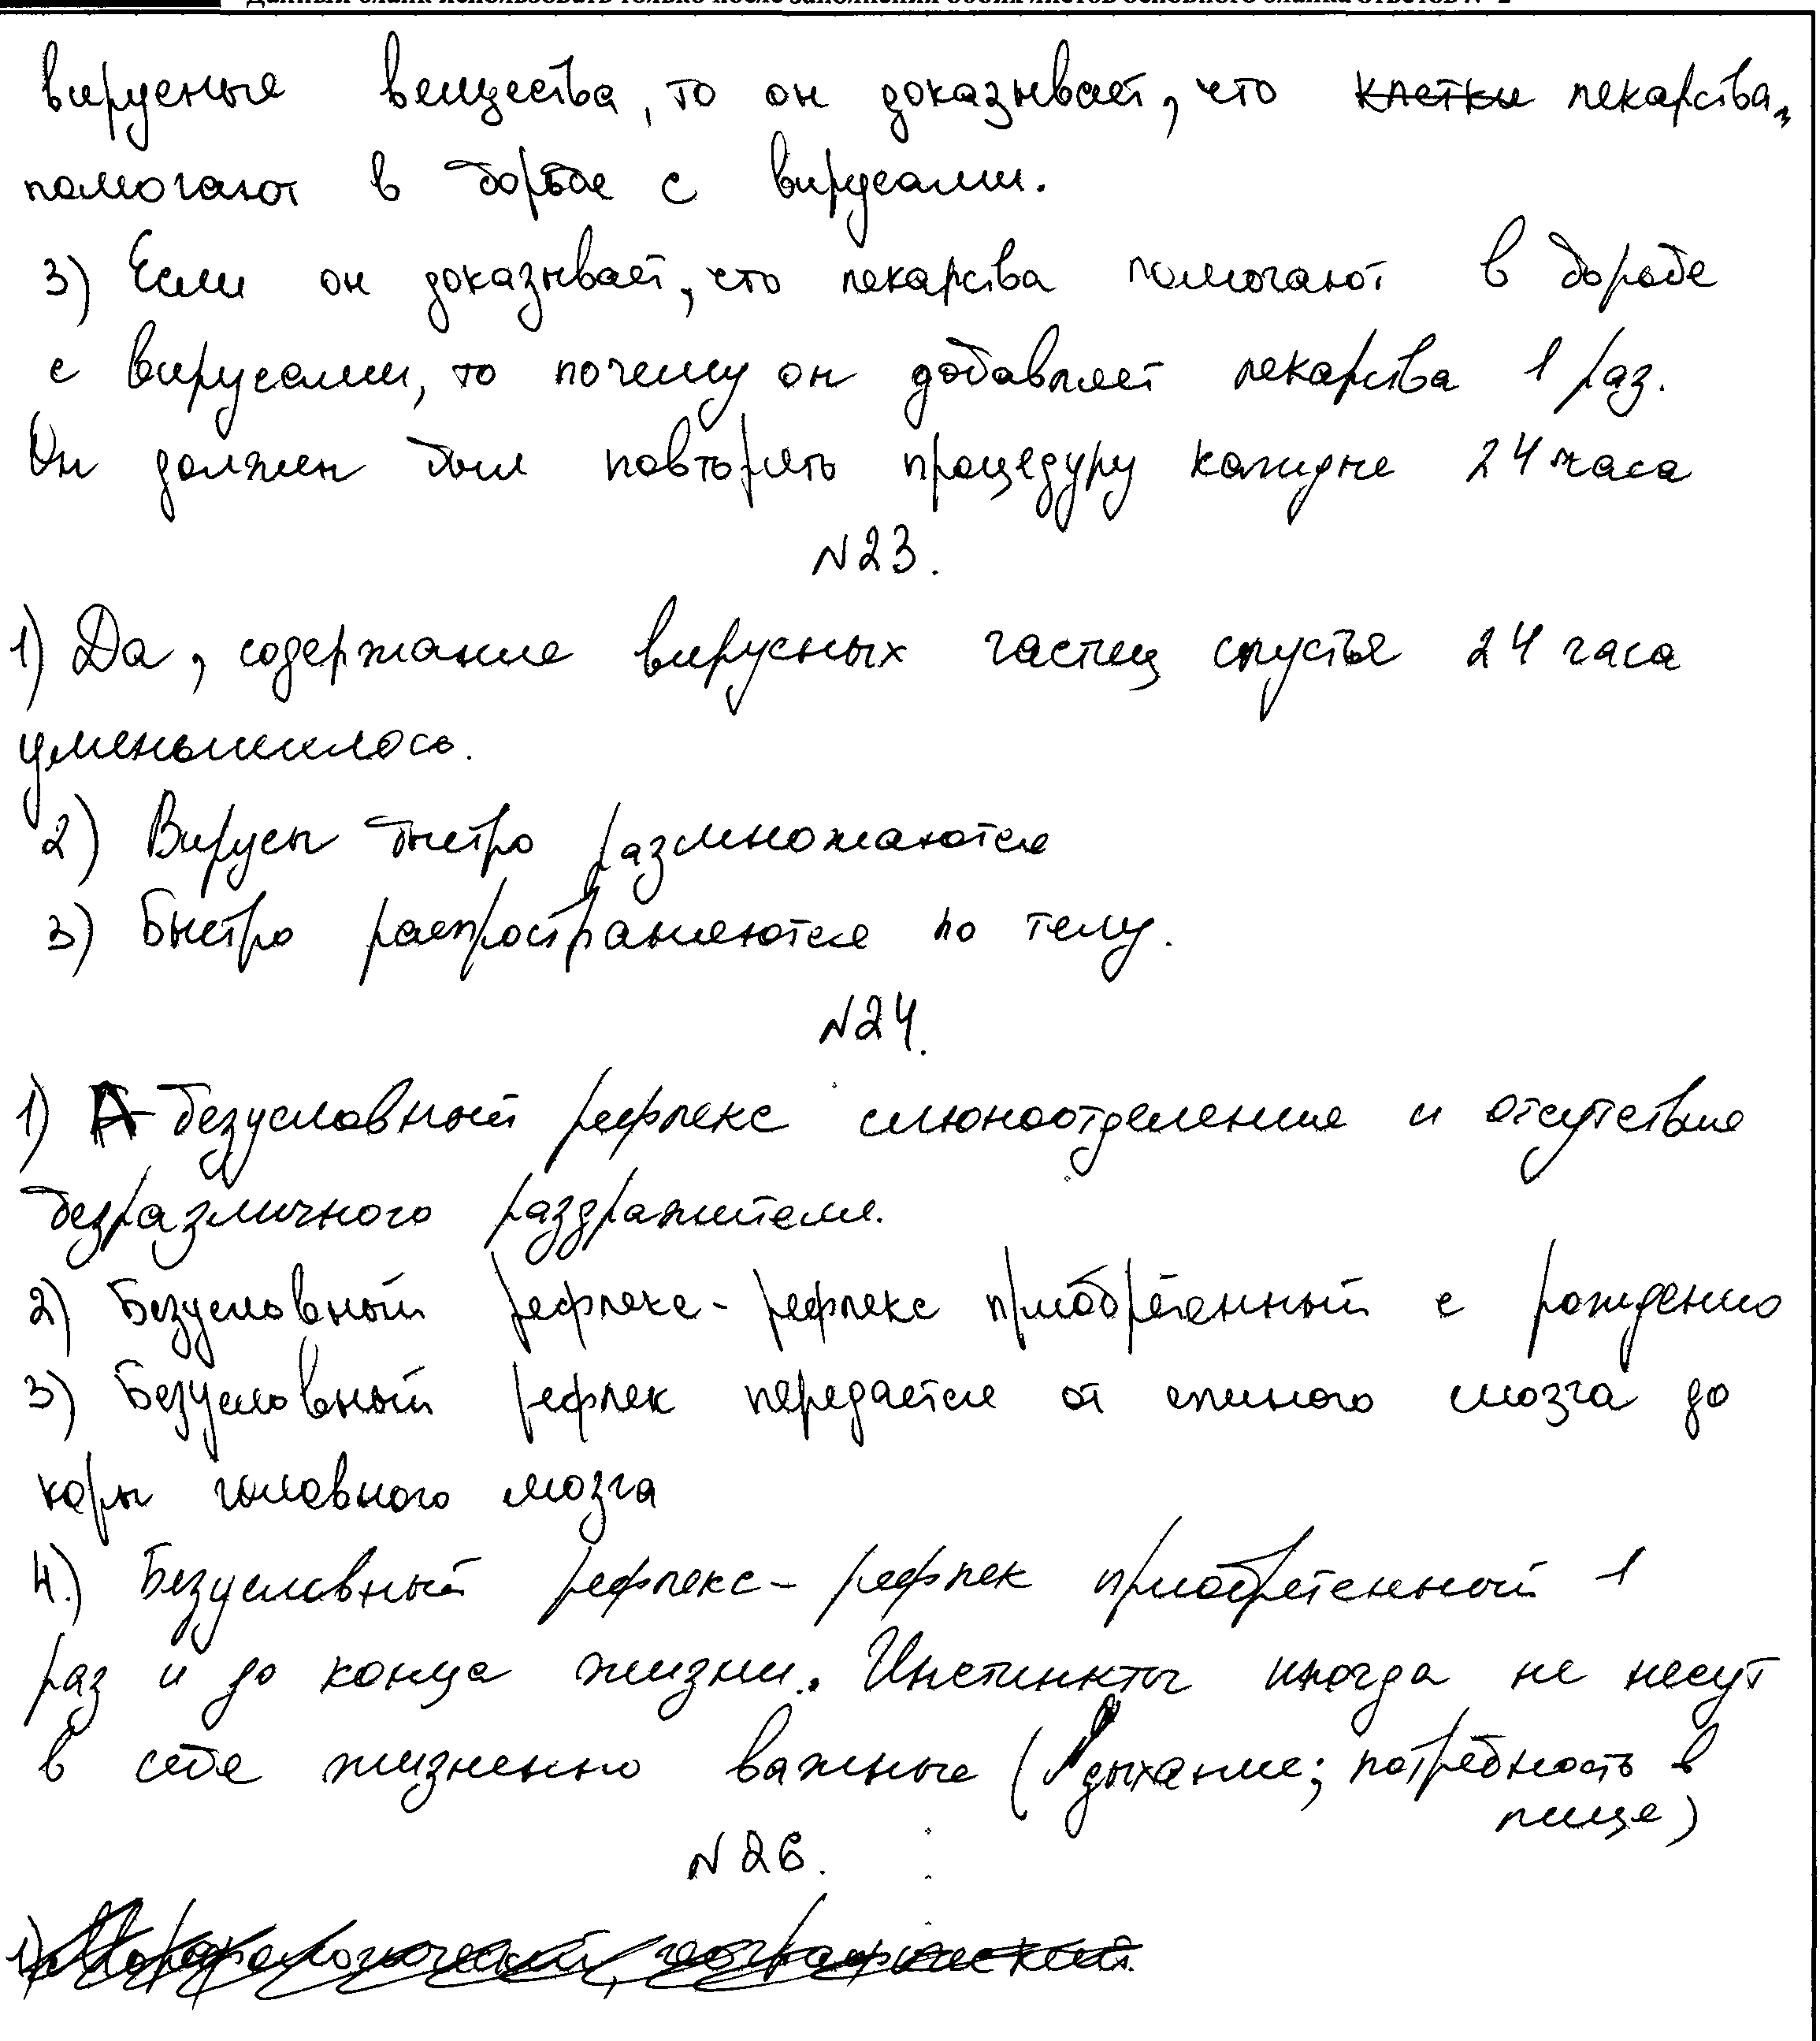 Данный бланк использовать только после заполнения обоих листов основного бланка ответов № 2
вирусные вещества, то он доказывает, что клетки лекарства,
помогают в борьбе с вирусами.
3) Если он доказывает, что лекарства помогают в борьбе
с вирусами, то почему он добавляет лекарства 1 раз.
Он должен был повторять процедуру каждые 24 часа
N23.
1) Да, содержание вирусных частиц спустья 24 часа
уменьшилось.
2) Вирусы быстро размножаются
3) Быстро распространяются по телу.
N24.
1) безусловный рефлекс слюноотделение и отсутствие
безразличного раздражителя.
2) Безусловный рефлекс - рефлекс приобретённый с рождению
3) Безусловный рефлек передаётся от спиного мозга до
коры головного мозга
4.) Безусловный рефлекс - рефлек приобретенный 1
раз и до конца жизни. Инстинкты иногда не несут
в себе жизненно важные (дыхание; потребность в
пище)
N26.
1) Морфологический, географический.